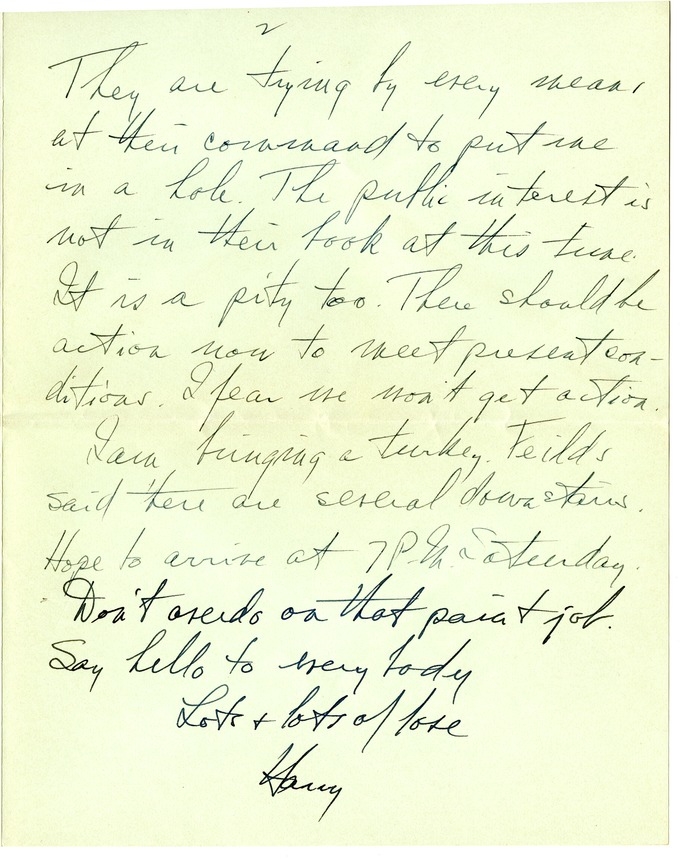 2
They are trying by every means
at their command to put me
in a hole. The public interest is
not in their book at this time.
It is a pity too. There should be
action now to meet present con-
ditions. I fear we won't get action.
I am bringing a turkey. Feilds
said there are several downstairs.
Hope to arrive at 7 P.M. Saturday.
Don't overdo on that paint job.
Say hello to every body
Lots + lots of love
Harry